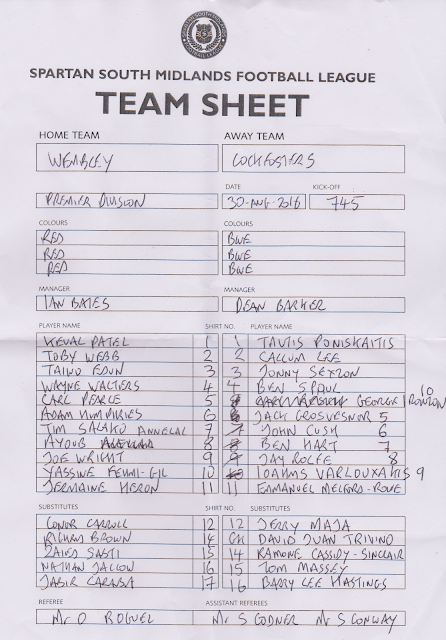 SPARTAN SOUTH MIDLANDS FOOTBALL LEAGUE
TEAM SHEET
HOME TEAM AWAY TEAM
WEMBLEY COCKFOSTERS
DATE KICK-OFF
PREMIER DIVISION 30-AUG-2016 745
COLOURS COLOURS
RED BLUE
RED BLUE
RED BLUE
MANAGER MANAGER
IAN BATES DEAN BARKER
PLAYER NAME SHIRT NO. PLAYER NAME
KEVAL PATEL 1 1 TAUTIS PONISKAITIS
TOBY WEBB 2 2 CALLUM LEE
TAIWO EDUN 3 3 JONNY SEXTON
WAYNE WALTERS 4 4 BEN SPAUL
CARL PEARCE 5 GEORGE IRONTON 10
ADAM HUMPHRIES 6 JACK GROSVESNOR 5
TIM SALAKO ANNELAL 7 JOHN CUSH 6
AYOUB 8 BEN HART 7
JOE WRIGHT 9 JAY ROLFE 8
YASSINE FEHMI-GIL 10 IOAHMS VARLOUXAKIS 9
JERMAINE HERON 11 11 EMMANUEL MELFORD-ROWE
SUBSTITUTES SHIRT NO. SUBSTITUTES
CONOR CARROLL 12 12 JERRY MAJA
RICHARD BROWN 14 GK DAVID JUAN TRIVINO
ZAIED SASTI 15 14 RAMONE CASSIDY-SINCLAIR
NATHAN JALLOW 16 15 TOM MASSEY
JABIR CARANSA 17 16 BARRY LEE HASTINGS
REFEREE ASSISTANT REFEREES
Mr O ROGUEL Mr S CODNER Mr S CONWAY